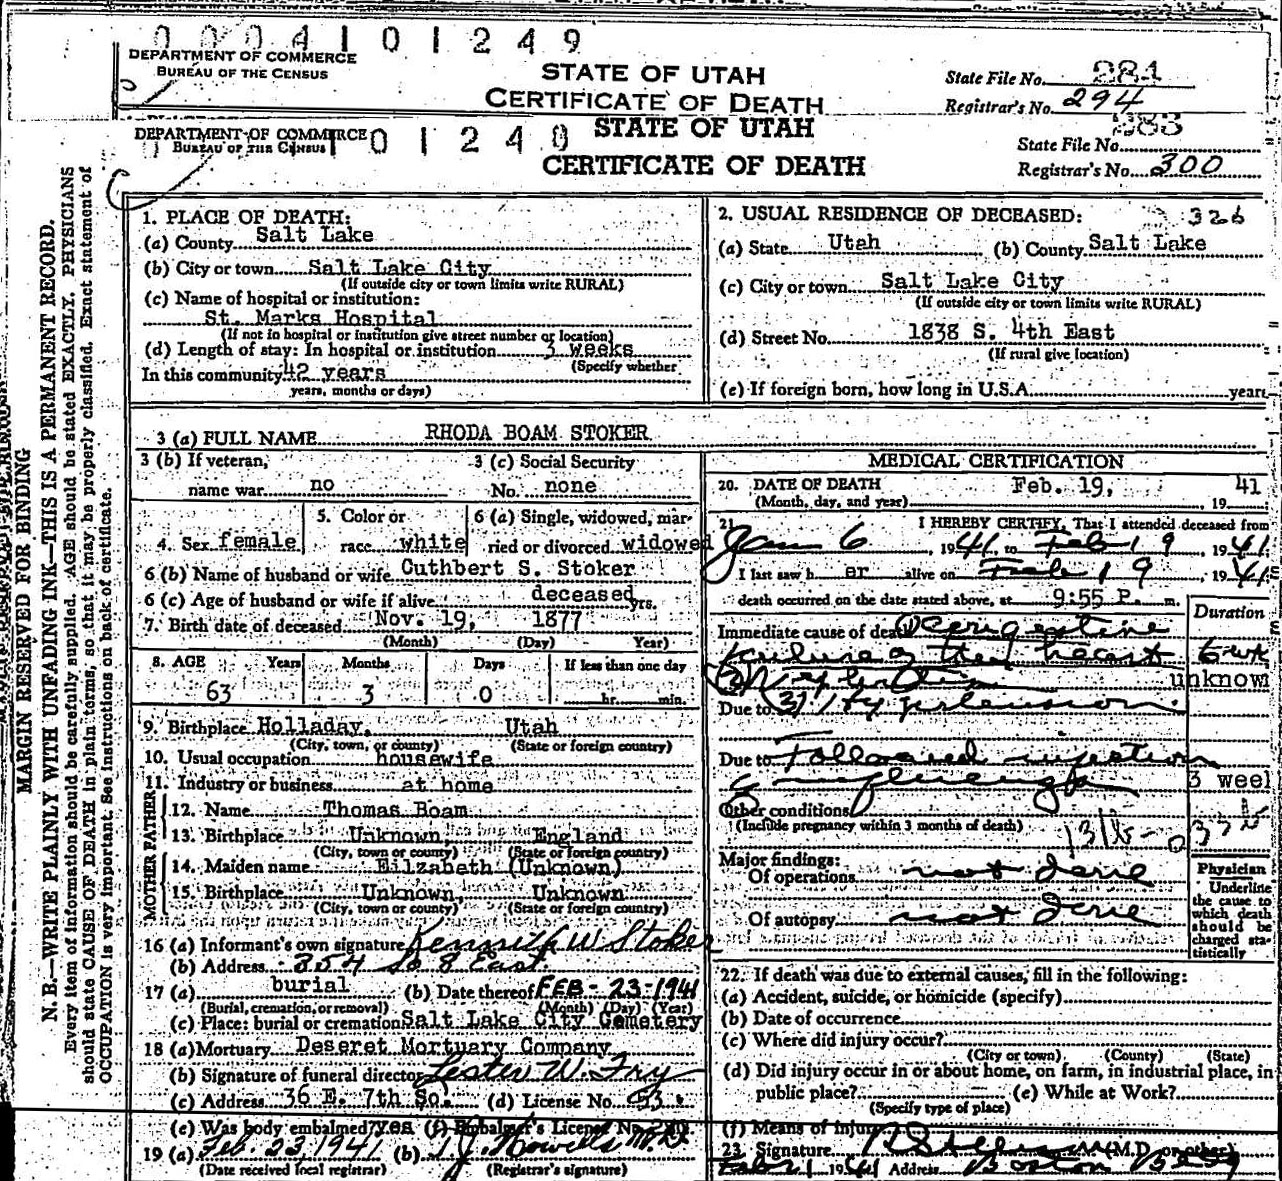 0004101249
DEPARTMENT OF COMMERCE
BUREAU OF THE CENSUS
STATE OF UTAH
CERTIFICATE OF DEATH
State File No. 284
Registrar's No. 294
DEPARTMENT OF COMMERCE
BUREAU OF THE CENSUS
01240
STATE OF UTAH
CERTIFICATE OF DEATH
State File No. 283
Registrar's No. 300
MARGIN RESERVED FOR BINDING
N. B.—WRITE PLAINLY WITH UNFADING INK—THIS IS A PERMANENT RECORD.
Every item of information should be carefully supplied. AGE should be stated EXACTLY. PHYSICIANS
should state CAUSE OF DEATH in plain terms, so that it may be properly classified. Exact statement of
OCCUPATION is very important. See instructions on back of certificate.
1. PLACE OF DEATH:
(a) County Salt Lake
(b) City or town Salt Lake City
(If outside city or town limits write RURAL)
(c) Name of hospital or institution:
St. Marks Hospital
(If not in hospital or institution give street number or location)
(d) Length of stay: In hospital or institution 3 weeks
(Specify whether
In this community 42 years
years, months or days)
2. USUAL RESIDENCE OF DECEASED: 326
(a) State Utah (b) County Salt Lake
(c) City or town Salt Lake City
(If outside city or town limits write RURAL)
(d) Street No. 1838 S. 4th East
(If rural give location)
(e) If foreign born, how long in U.S.A. years
3 (a) FULL NAME RHODA BOAM STOKER
3 (b) If veteran, name war no
3 (c) Social Security No. none
4. Sex female
5. Color or race white
6 (a) Single, widowed, married or divorced widowed
6 (b) Name of husband or wife Cuthbert S. Stoker
6 (c) Age of husband or wife if alive deceased yrs.
7. Birth date of deceased Nov. 19, 1877
(Month) (Day) Year)
8. AGE Years Months Days If less than one day
63 3 0 hr. min.
9. Birthplace Holladay, Utah
(City, town, or county) (State or foreign country)
10. Usual occupation housewife
11. Industry or business at home
FATHER
12. Name Thomas Boam
13. Birthplace Unknown, England
(City, town or county) (State or foreign country)
MOTHER
14. Maiden name Elizabeth (Unknown)
15. Birthplace Unknown, Unknown
(City, town or county) (State or foreign country)
16 (a) Informant's own signature Kenneth W Stoker
(b) Address 354 So 8 East
17 (a) burial (b) Date thereof FEB-23-1941
(Burial, cremation, or removal) (Month) (Day) (Year)
(c) Place: burial or cremation Salt Lake City Cemetery
18 (a) Mortuary Deseret Mortuary Company
(b) Signature of funeral director Lester W. Fry
(c) Address 36 E. 7th So. (d) License No. 53
(e) Was body embalmed? yes (f) Embalmer's License No.
19 (a) Feb. 23, 1941 (b)
(Date received local registrar) (Registrar's signature)
MEDICAL CERTIFICATION
20. DATE OF DEATH Feb. 19, 1941
(Month, day, and year)
21. I HEREBY CERTIFY, That I attended deceased from
Jan 6, 1941 to Feb 19, 1941
I last saw her alive on Feb 19, 1941
death occurred on the date stated above, at 9:55 P. m.
Duration
Immediate cause of death (1) Congestive
failure of the heart 6 wk
(2) unknown
Due to (3) Hypertension
Due to Followed infection
of 3 weel
Other conditions
(Include pregnancy within 3 months of death)
Major findings:
Of operations not done
Of autopsy not done
Physician
Underline
the cause to
which death
should be
charged sta-
tistically
22. If death was due to external causes, fill in the following:
(a) Accident, suicide, or homicide (specify)
(b) Date of occurrence
(c) Where did injury occur?
(City or town), (County) (State)
(d) Did injury occur in or about home, on farm, in industrial place, in
public place? (e) While at Work?
(Specify type of place)
(f) Means of injury
23. Signature (M.D. or other)
1941 Address Boston Bldg